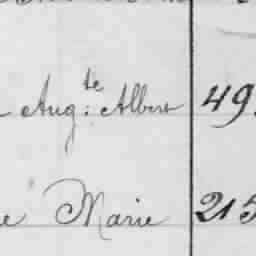 Aug:te Albert 49
e Marie 215